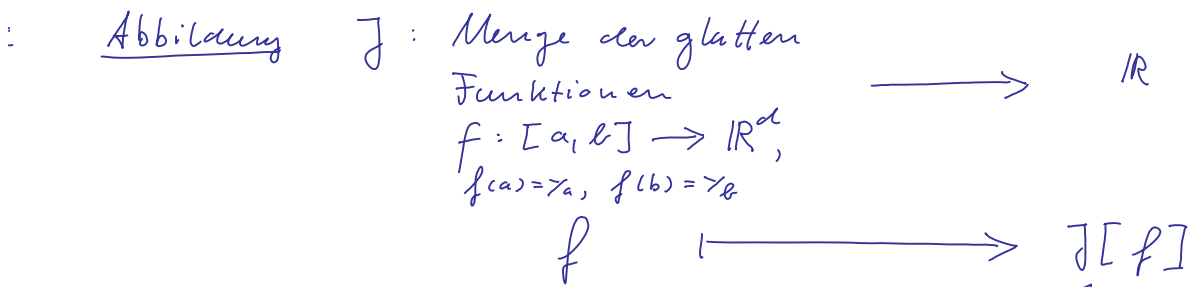 : Abbildung J : Menge der glatten
Funktionen → ℝ
f : [a, b] → ℝ^d,
f(a) = y_a, f(b) = y_b
f ↦ J[f]